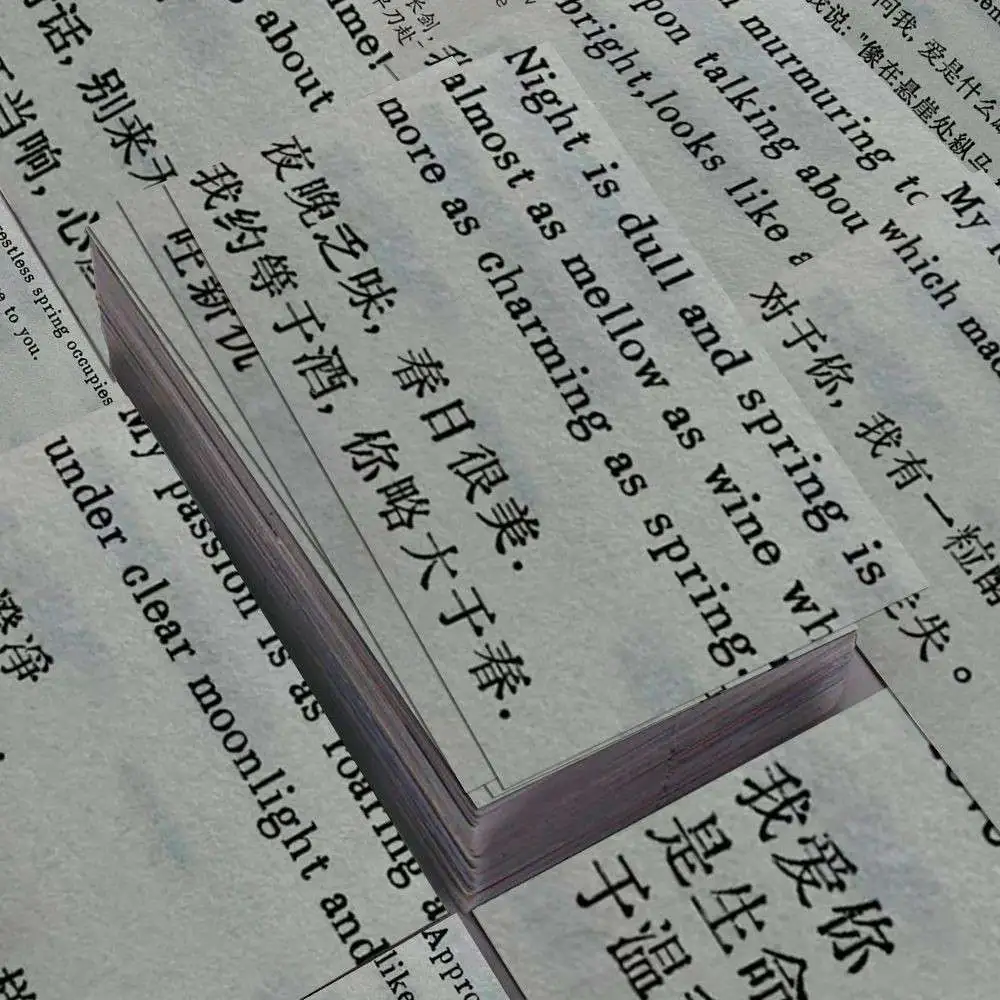 Night is dull and spring is
almost as mellow as wine wh
more as charming as spring.
夜晚乏味，春日很美.
我约等于酒，你略大于春.
about
ime!
长剑，
murmuring to
pon talking abou
bright, looks like a
问我，爱是什么
我说："像在悬崖处纵马
My
which mad
对于你，我有一粒
失。
话，别来
当响，心
restless spring occupies
e to you.
My passion is as roaring a
under clear moonlight and
like
Appro
我爱你
是生命
于温